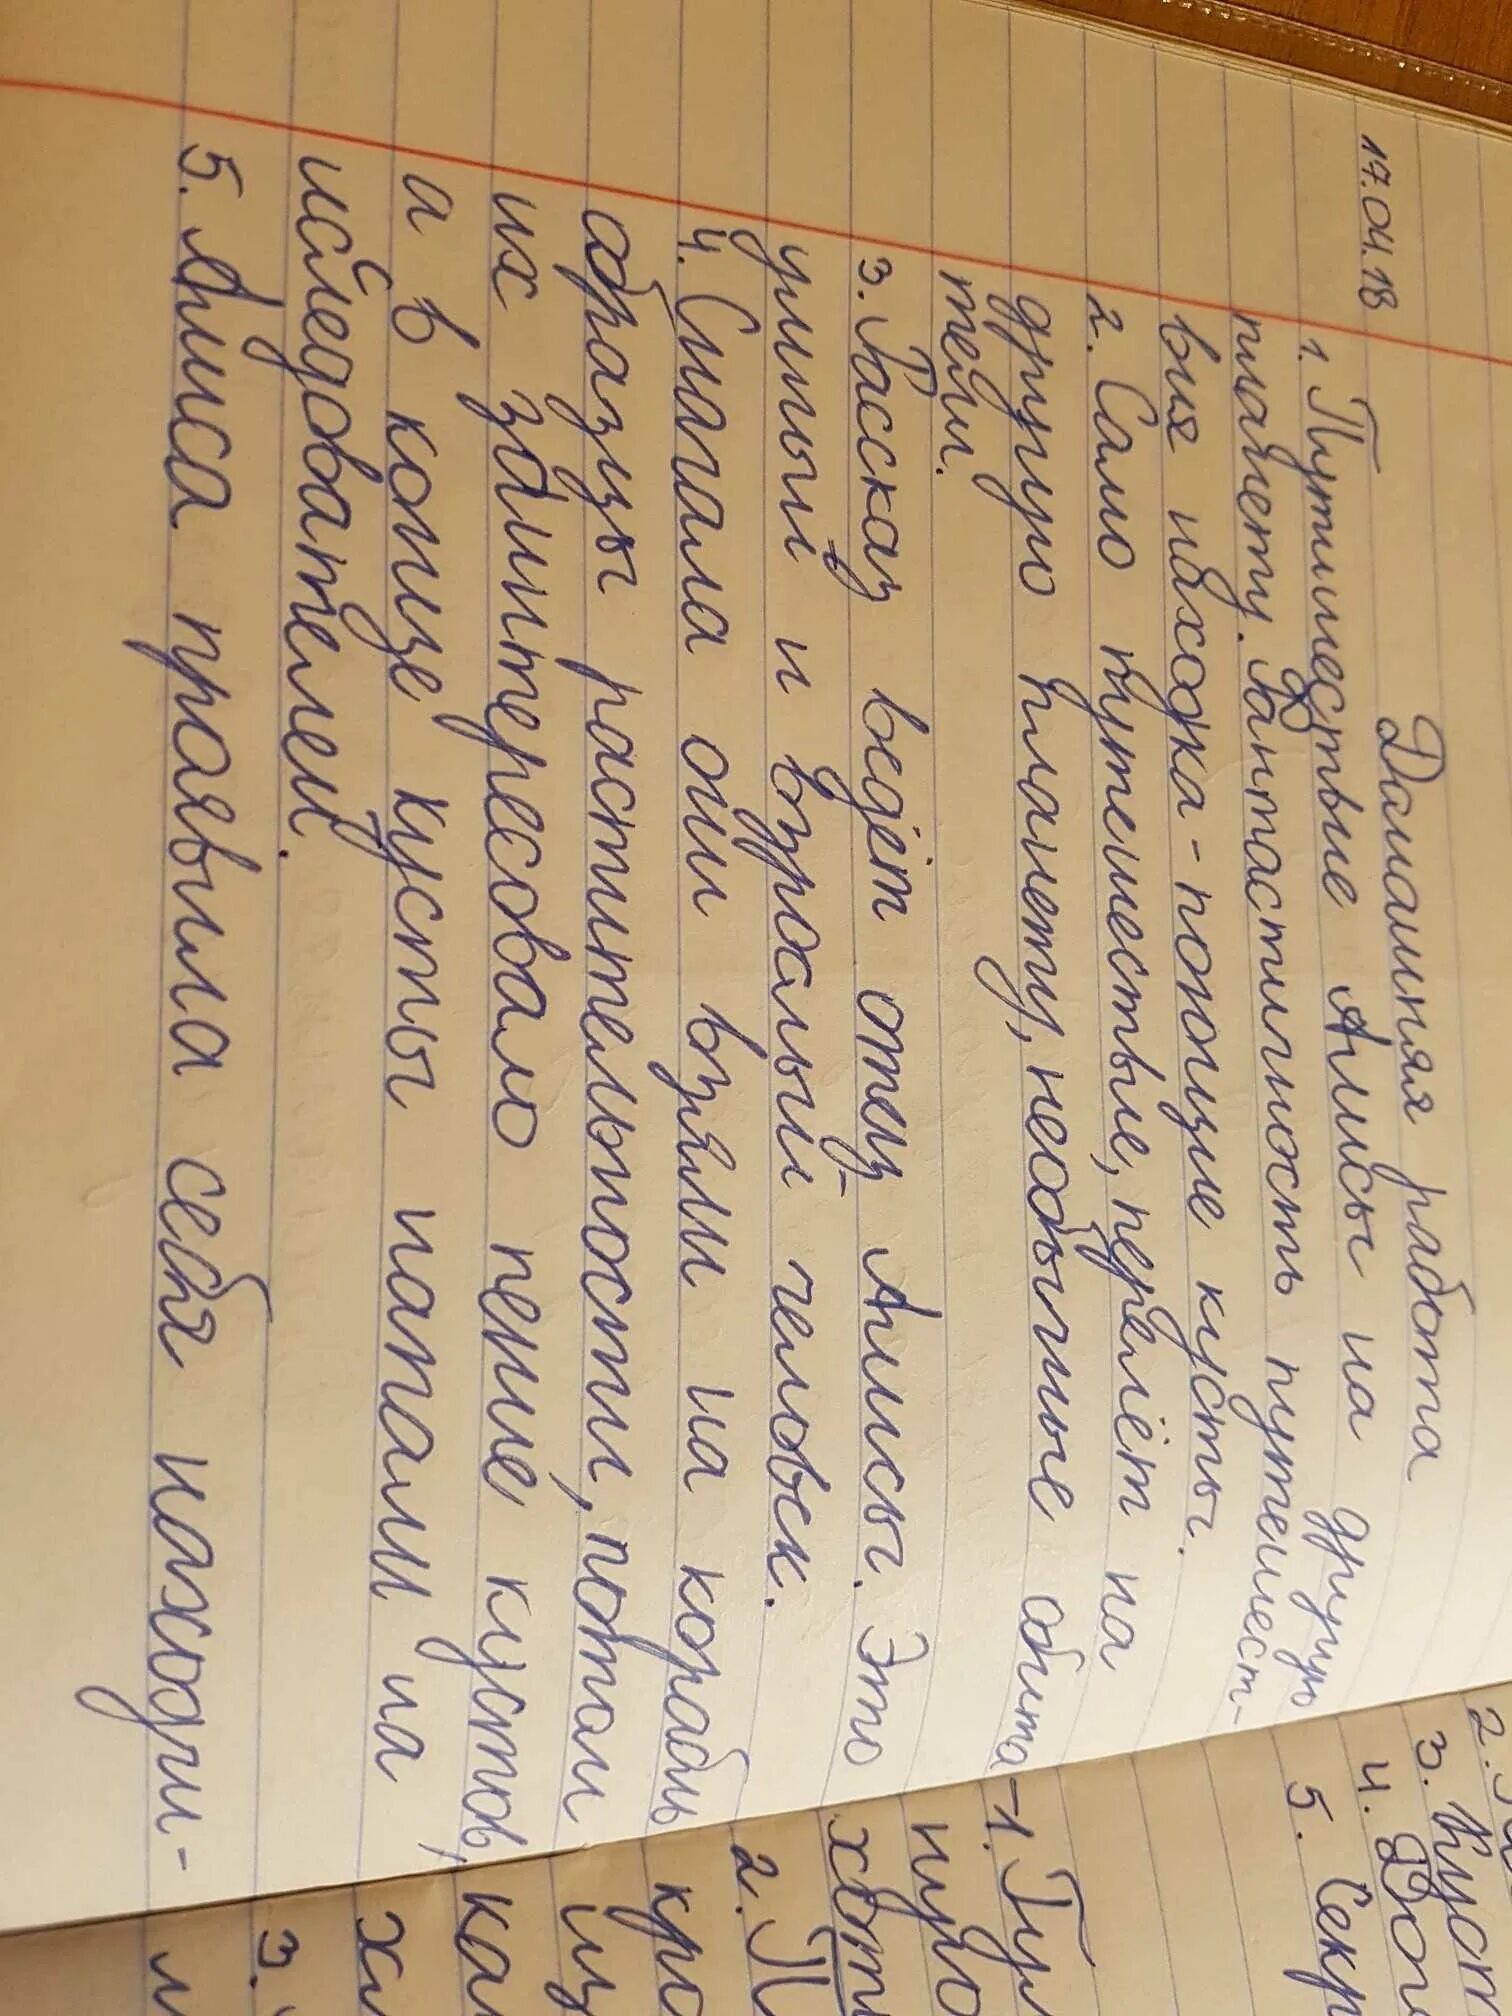 17.04.18
Домашняя работа
1. Путишествие Алисы на другую
планету. Фантастичность путешест-
вия находка - поющие кусты.
2. Само путешествие, перелёт на
другую планету, необычные обита-
тели.
3. Рассказ ведёт отец Алисы. Это
умный и взрослый человек.
4. Сначала они взяли на корабль
образцы растительности, потом
их заинтересовало пение кустов,
а в конце кусты напали на
исследователей.
5. Алиса проявила себя находчи-
2.
3. Куст
4. Дог
5. Секр
1. Гул
нужо
хоть
2. П
кра
из
ка
хл
3.
л